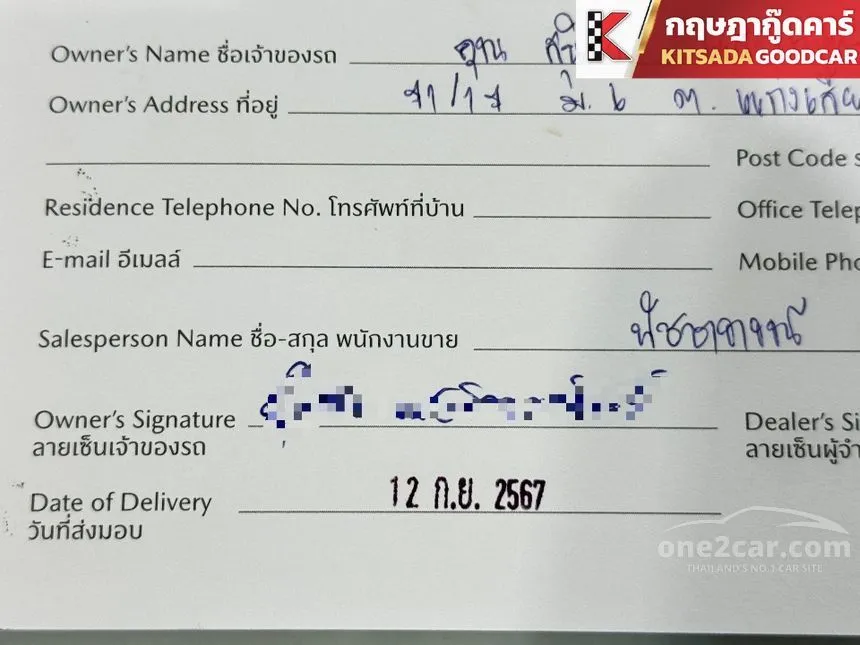 กฤษฎากู๊ดคาร์
KITSADA GOODCAR
Owner's Name ชื่อเจ้าของรถ
Owner's Address ที่อยู่ ม. ต.
Post Code
Residence Telephone No. โทรศัพท์ที่บ้าน
Office Telep
E-mail อีเมลล์
Mobile Pho
Salesperson Name ชื่อ-สกุล พนักงานขาย
Owner's Signature
Dealer's Si
ลายเซ็นเจ้าของรถ
ลายเซ็นผู้จำ
Date of Delivery 12 ก.ย. 2567
วันที่ส่งมอบ
one2car.com
THAILAND'S NO.1 CAR SITE